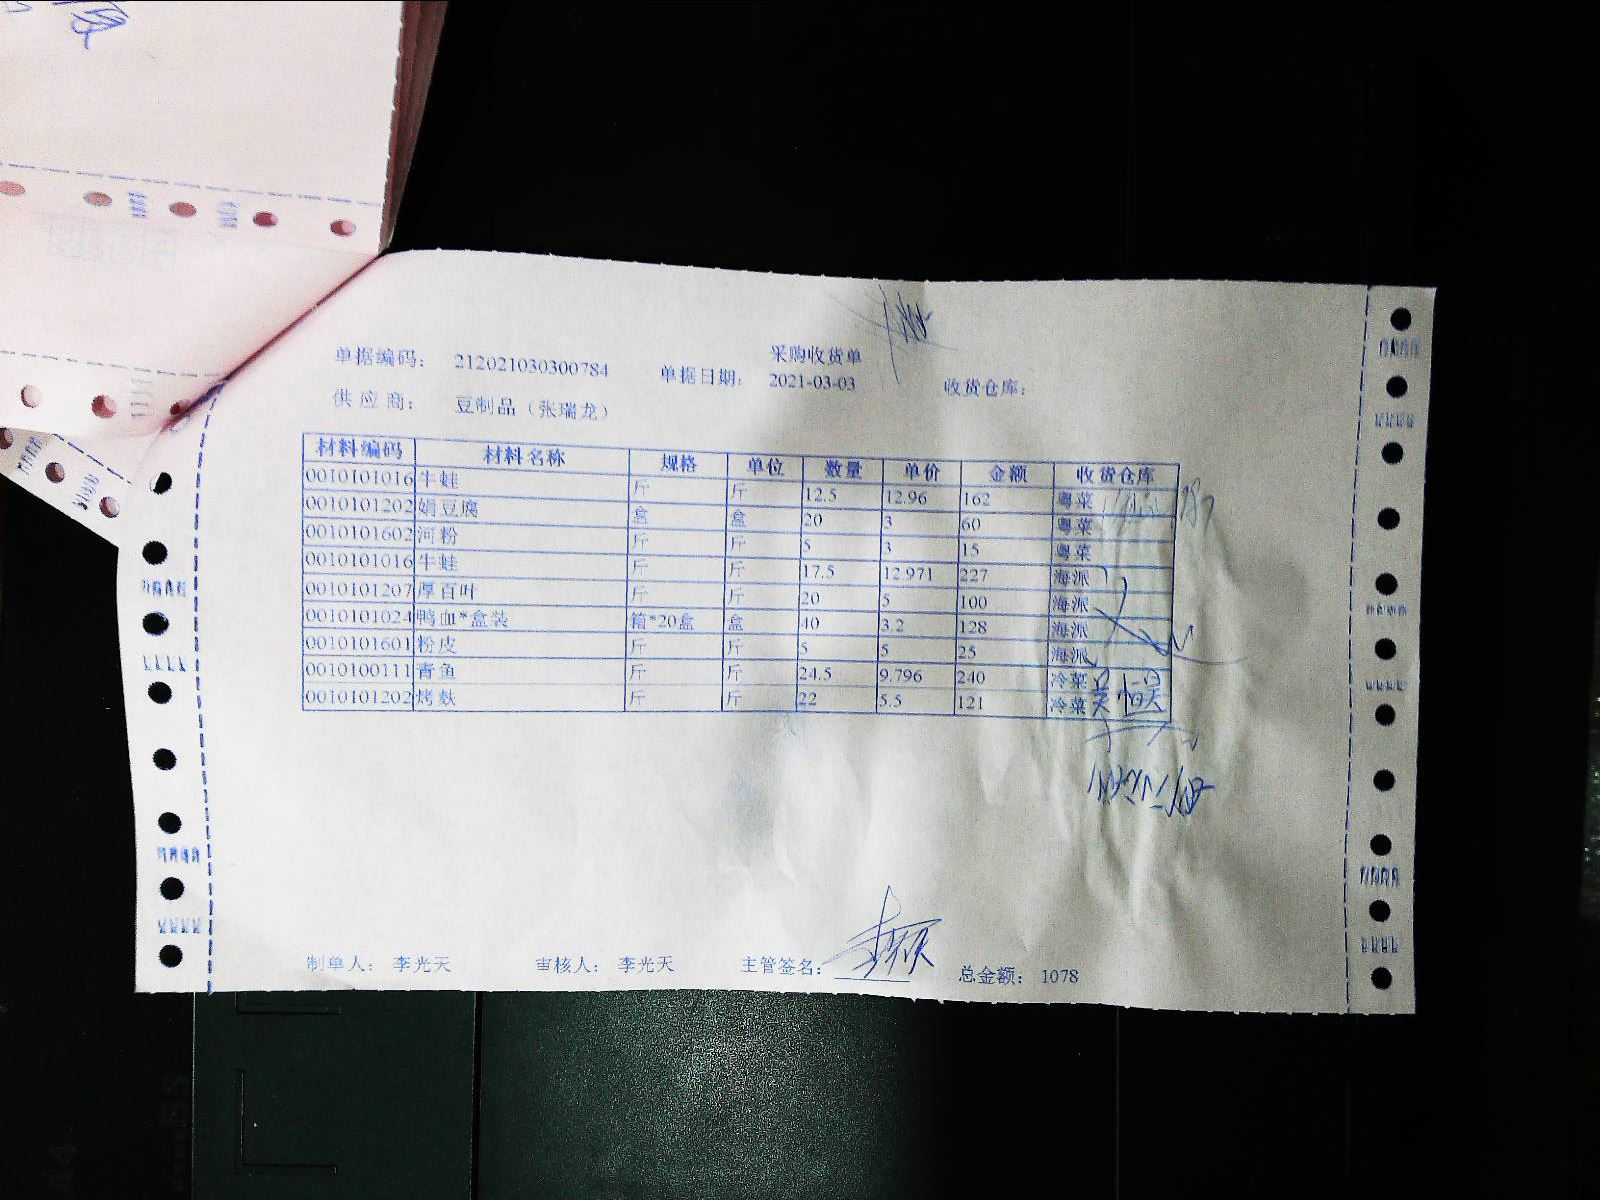 采购收货单
单据编码： 212021030300784 单据日期： 2021-03-03 收货仓库：
供 应 商： 豆制品（张瑞龙）
材料编码 材料名称 规格 单位 数量 单价 金额 收货仓库
0010101016 牛蛙 斤 斤 12.5 12.96 162 粤菜
0010101202 娟豆腐 盒 盒 20 3 60 粤菜
0010101602 河粉 斤 斤 5 3 15 粤菜
0010101016 牛蛙 斤 斤 17.5 12.971 227 海派
0010101207 厚百叶 斤 斤 20 5 100 海派
0010101024 鸭血*盒装 箱*20盒 盒 40 3.2 128 海派
0010101601 粉皮 斤 斤 5 5 25 海派
0010100111 青鱼 斤 斤 24.5 9.796 240 冷菜
0010101202 烤麸 斤 斤 22 5.5 121 冷菜
制单人： 李光天 审核人： 李光天 主管签名： 总金额： 1078